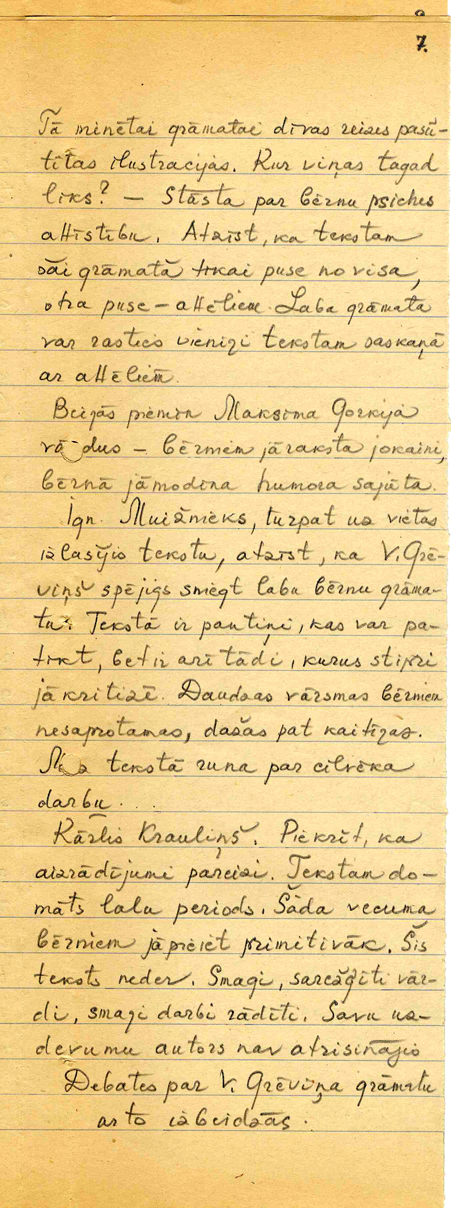 7.
Tā minētai grāmatai divas reizes pasū-
tītas ilustrācijas. Kur viņas tagad
liks? — Stāsta par bērnu psiches
attīstību. Atzist, ka tekstam
šāi grāmatā tikai puse no visa,
otra puse – attēliem. Laba grāmata
var rasties vienīgi tekstam saskaņā
ar attēliem.
Beigās piemin Maksima Gorkija
vārdus – bērniem jāraksta jokaini,
bērnā jāmodina humora sajūta.
Ign. Muižnieks, turpat uz vietas
izlasījis tekstu, atzīst, ka V. Grē-
viņš spējīgs sniegt labu bērnu grāma-
tu. Tekstā ir pantiņi, kas var pa-
tikt, bet ir arī tādi, kurus stipri
jākritizē. Daudzas vārsmas bērniem
nesaprotamas, dažas pat kaitīgas.
tekstā runa par cilvēka
darbu...
Kārlis Krauliņš. Piekrīt, ka
aizrādījumi pareizi. Tekstam do-
māts lalu periods. Šāda vecuma
bērniem jāpieiet primitivāk. Šis
teksts neder. Smagi, sarežģīti vār-
di, smagi darbi rādīti. Savu uz-
devumu autors nav atrisinājis
Debates par V. Grēviņa grāmatu
ar to izbeidzās.